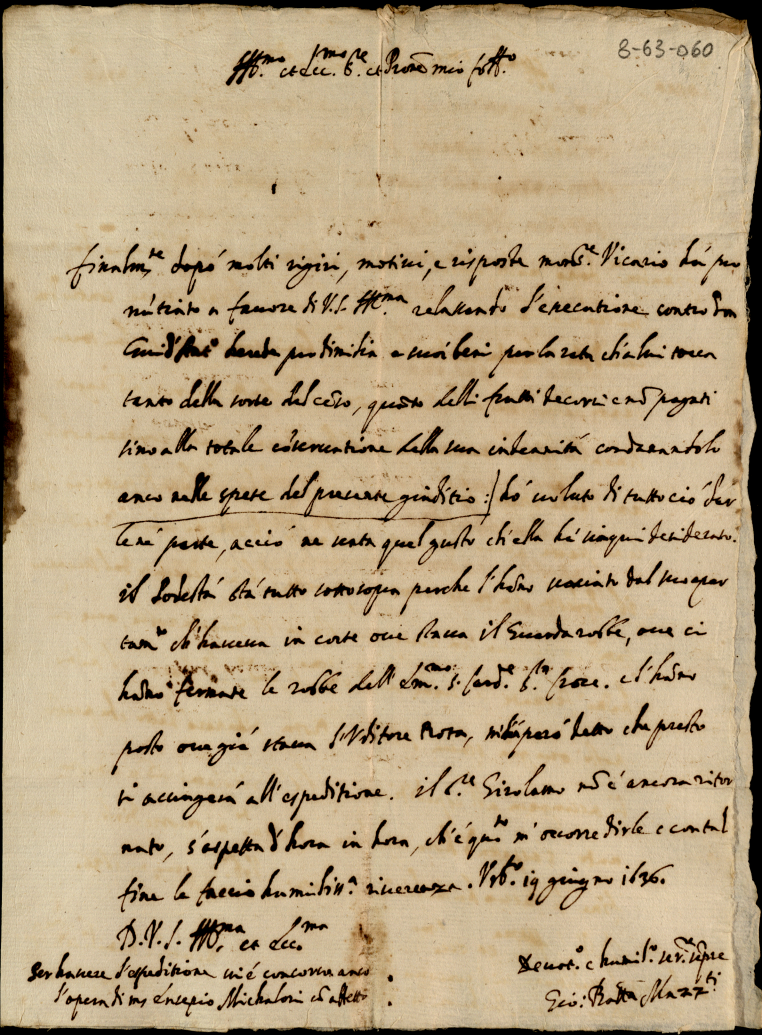 8-63-060
Ill.mo et Ecc. S.re et Prone mio Coll.o
finalm.te dopò molti rigiri, motivi, e risposte mons.re Vicario hà pro
nuntiato a favore di V.S. Ill.ma relassando l'executione contro
herede pro dimidia e suoi beni per la rata ch'a lui tocca
tanto della sorte del censo, quanto delli frutti decorsi e nõ pagati
sino alla totale osservatione della sua indennità condannandolo
anco nelle spese del presente giuditio :/ hò voluto di tutto ciò dar
le nè parte, acciò ne senta quel gusto ch'ella hà sinqui desiderato.
il Podestà stà tutto sottosopra perche l'hãno cacciato dal suo apar
tam.to ch'haveva in corte ove stava il Guardarobbe, ove ci
hãno fermate le robbe dell' Em.mo S. Card.le S.ta Croce. e l'hãno
posto ove già stava l'Uditore Rota, mi hà però detto che presto
si accingerà all'espeditione. il S.re Girolamo nõ è ancora ritor
nato, s'aspetta d'hora in hora, ch'è q.to m'occorre dirle e con tal
fine le faccio humiliss.a riverenza. Urb.o 19 giugno 1636.
D.V.S. Ill.ma et Ecc.ma
Per havere l'espeditione vi è concorso anco
l'opera di ms Michaloni
Devot.o e humil.o ser.re sẽpre
Gio: Batta Mazz.ti